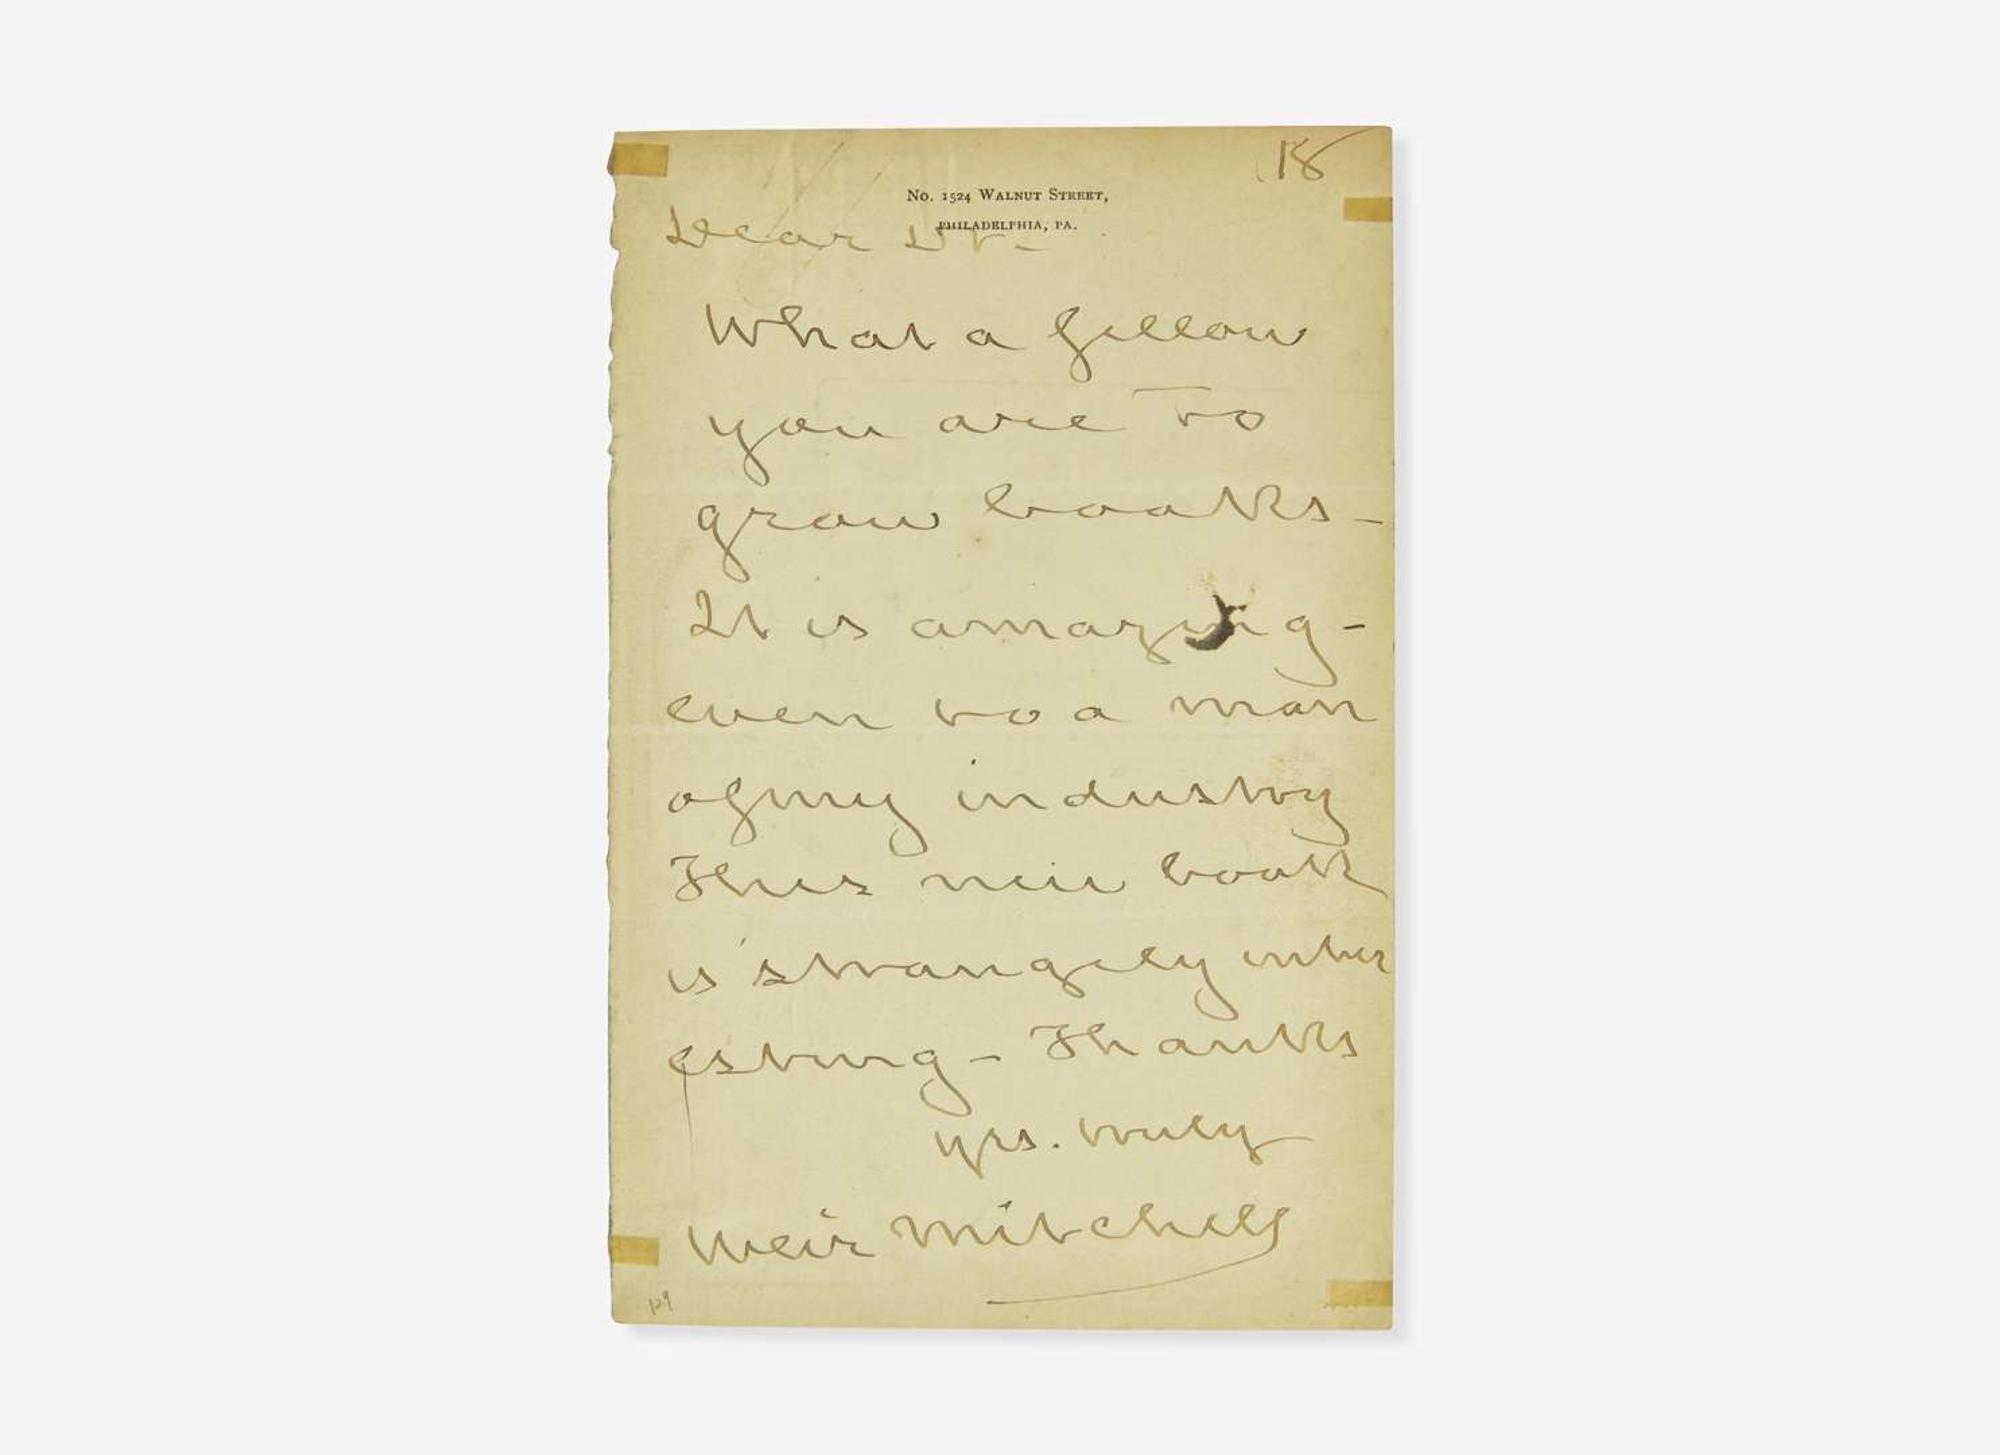 18
No. 1524 Walnut Street,
Philadelphia, Pa.
Dear Dr –
What a fellow
you are to
grow books –
It is amazing –
even to a man
of my industry
This new book
is strangely inter
esting – Thanks
yrs. truly
Weir Mitchell
129